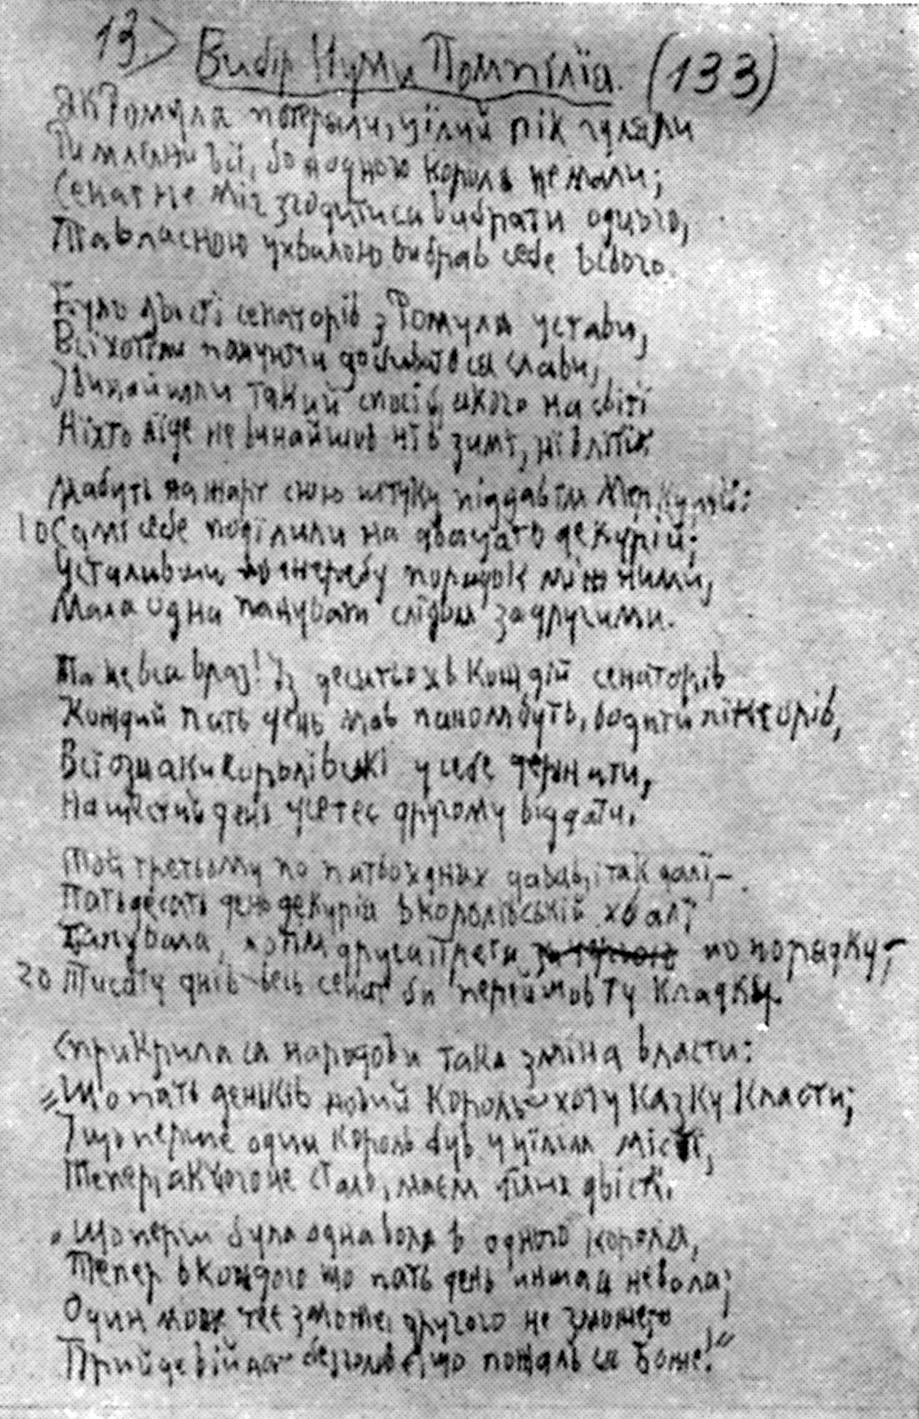 13) Вибір Нуми Помпілїа. (133)
Як Ромула потеряли, цїлий рік гуляли
Римлєни всї, бо н одного короля не мали;
Сенат не міг згодитися вибрати одного,
Та власною ухвалою вибрав себе всього.
Було двістї сенаторів з Ромула устави,
Всї хотїли панувати
І винайшли такий спосіб, якого на світї
Нїхто їще не винайшов нї в зимі, нї в лїтї.
Мабуть на жарт сюю штуку піддав їм Меркурій:
10 Самі себе подїлили на двацять декурій;
Усталивши по жеребу порядок між ними,
Мала одна панувати слїдом за другими.
Та не вся враз! Із десятьох в кождій сенаторів
Кождий пять день мав паном буть, водити лікторів,
Всї ознаки королївські у себе держати,
На шестий день усе тес другому віддати.
Той третьому по пятьох днях давав, і так далї, –
Пятьдесять день декурія в королївській хвалї
Панувала, потїм друга і третя по порядку, –
20 Тисячу днів весь сенат би перейшов ту кладку.
Сприкрилася народови така зміна власти:
„Що пять деньків новий король – хоч у казку класти;
І що перше один король був у цїлїм місті,
Тепер, як чого не стало, маєм їх двістї.
„Що перш була одна воля в одного короля,
Тепер в кождого що пять день инша й неволя;
Один може тес зможе, другого не зможе
Прийде війна – безголовє, що пожалься Боже!"